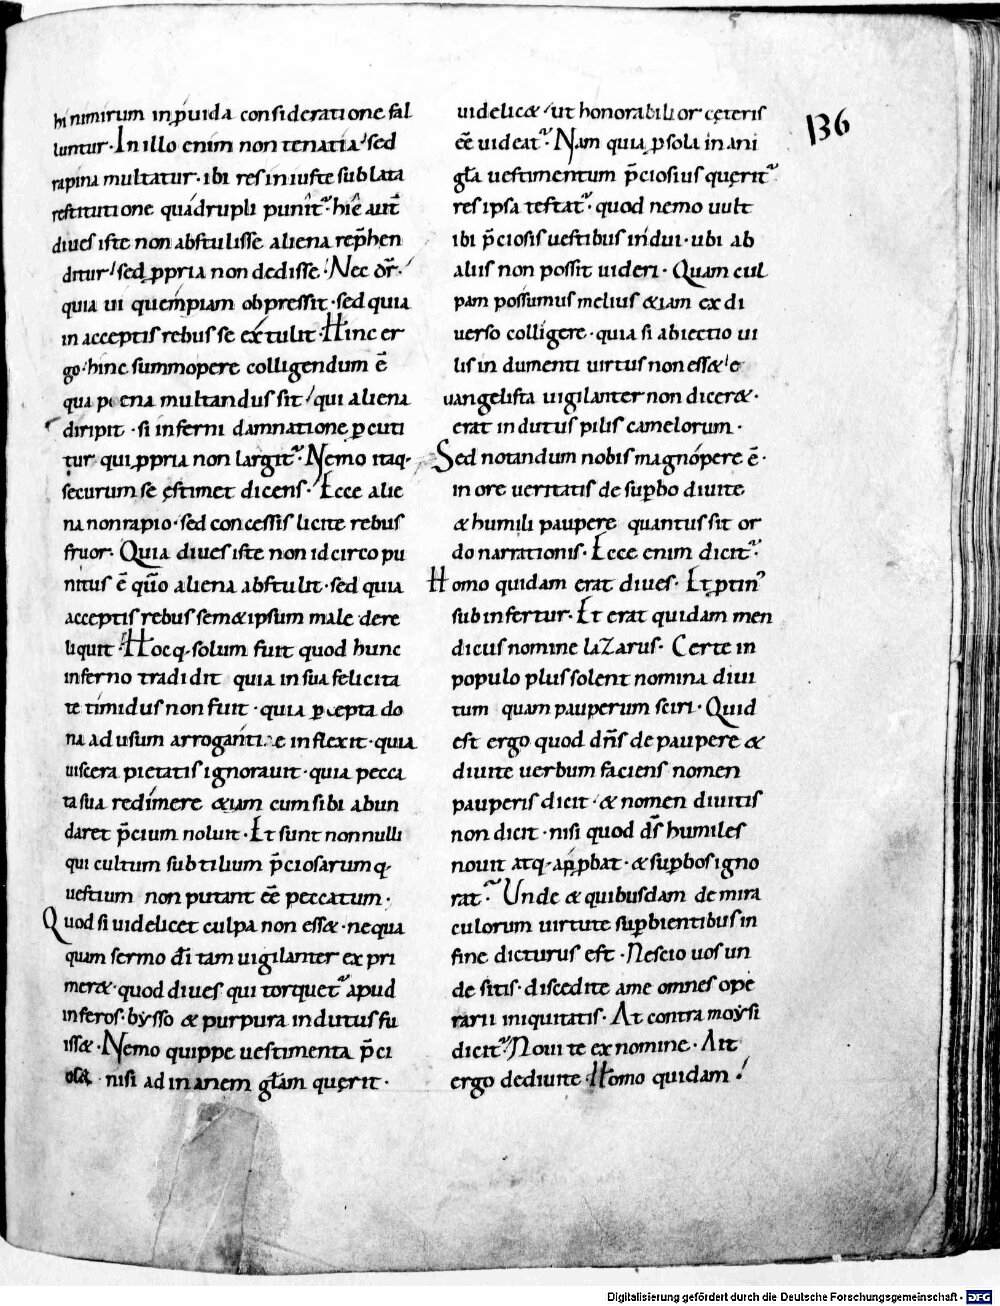 hi nimirum inp̱uida consideratione fal
luntur· In illo enim non tenatia sed
rapina multatur· ibi res iniuste sublata
restitutione quádrupli punit᷑· hic aut̄
diues iste non abstulisse aliena rep̄hen
ditur sed p̱pria non dedisse· Nec dr̄·
quia ui quempiam obpressit· sed quia
in acceptis rebus se extulit· Hinc er
go· hinc summopere colligendum ē
qua poena multandus sit qui aliena
diripit· si inferni damnatione ꝑcuti
tur qui p̱pria non largit᷑· Nemo itaq·
securum se ęstimet dicens· Ecce alie
na non rapio· sed concessis licite rebus
fruor· Quia diues iste non idcirco pu
nitus ē quō aliena abstulit· sed quia
acceptis rebus sem&ipsum male dere
liquit· Hocq· solum fuit quod hunc
inferno tradidit quia in sua felicita
te timidus non fuit· quia ꝑcepta do
na ad usum arrogantiae inflexit· quia
uiscera pietatis ignorauit· quia pecca
ta sua redimere &iam cum sibi abun
daret p̄cium noluit· Et sunt nonnulli
qui cultum subtilium p̄ciosarumq·
uestium non putant ēē peccatum·
Quod si uidelicet culpa non ess&· nequa
quam sermo dī tam uigilanter expri
mer&· quod diues qui torquet᷑ apud
inferos· bysso & purpura indutus fu
iss&· Nemo quippe uestimenta p̄ci
osa· nisi ad inanem gl̄am quęrit·
uidelic& ut honorabilior cęteris
ēē uideat᷑· Nam quia ꝑ sola inani
gl̄a uestimentum p̄ciosius quęrit᷑
res ipsa testat᷑· quod nemo uult
ibi p̄ciosis uestibus indui· ubi ab
aliis non possit uideri· Quam cul
pam possumus melius &iam ex di
uerso colligere· quia si abiectio ui
lis indumenti uirtus non ess& e
uangelista uigilanter non dicer&·
erat indutus pilis camelorum·
Sed notandum nobis magnópere ē·
in ore ueritatis de suꝑbo diuite
& humili paupere quantus sit or
do narrationis· Ecce enim dicit᷑·
Homo quidam erat diues· Et ꝓtin᷒
subinfertur· Et erat quidam men
dicus nomine laZarus· Certe in
populo plus solent nomina diui
tum quam pauperum sciri· Quid
est ergo quod dn̄s de paupere &
diuite uerbum faciens nomen
pauperis dicit· & nomen diuitis
non dicit· nisi quod ds̄ humiles
nouit atq· apꝓbat· & suꝑbos igno
rat· Unde & quibusdam de mira
culorum uirtute suꝑbientibus in
fine dicturus est· Nescio uos un
de sitis· discedite a me omnes ope
rarii iniquitatis· At contra moẏsi
dicit᷑· Noui te ex nomine· Ait
ergo de diuite· Homo quidam·
136
Digitalisierung gefördert durch die Deutsche Forschungsgemeinschaft - DFG